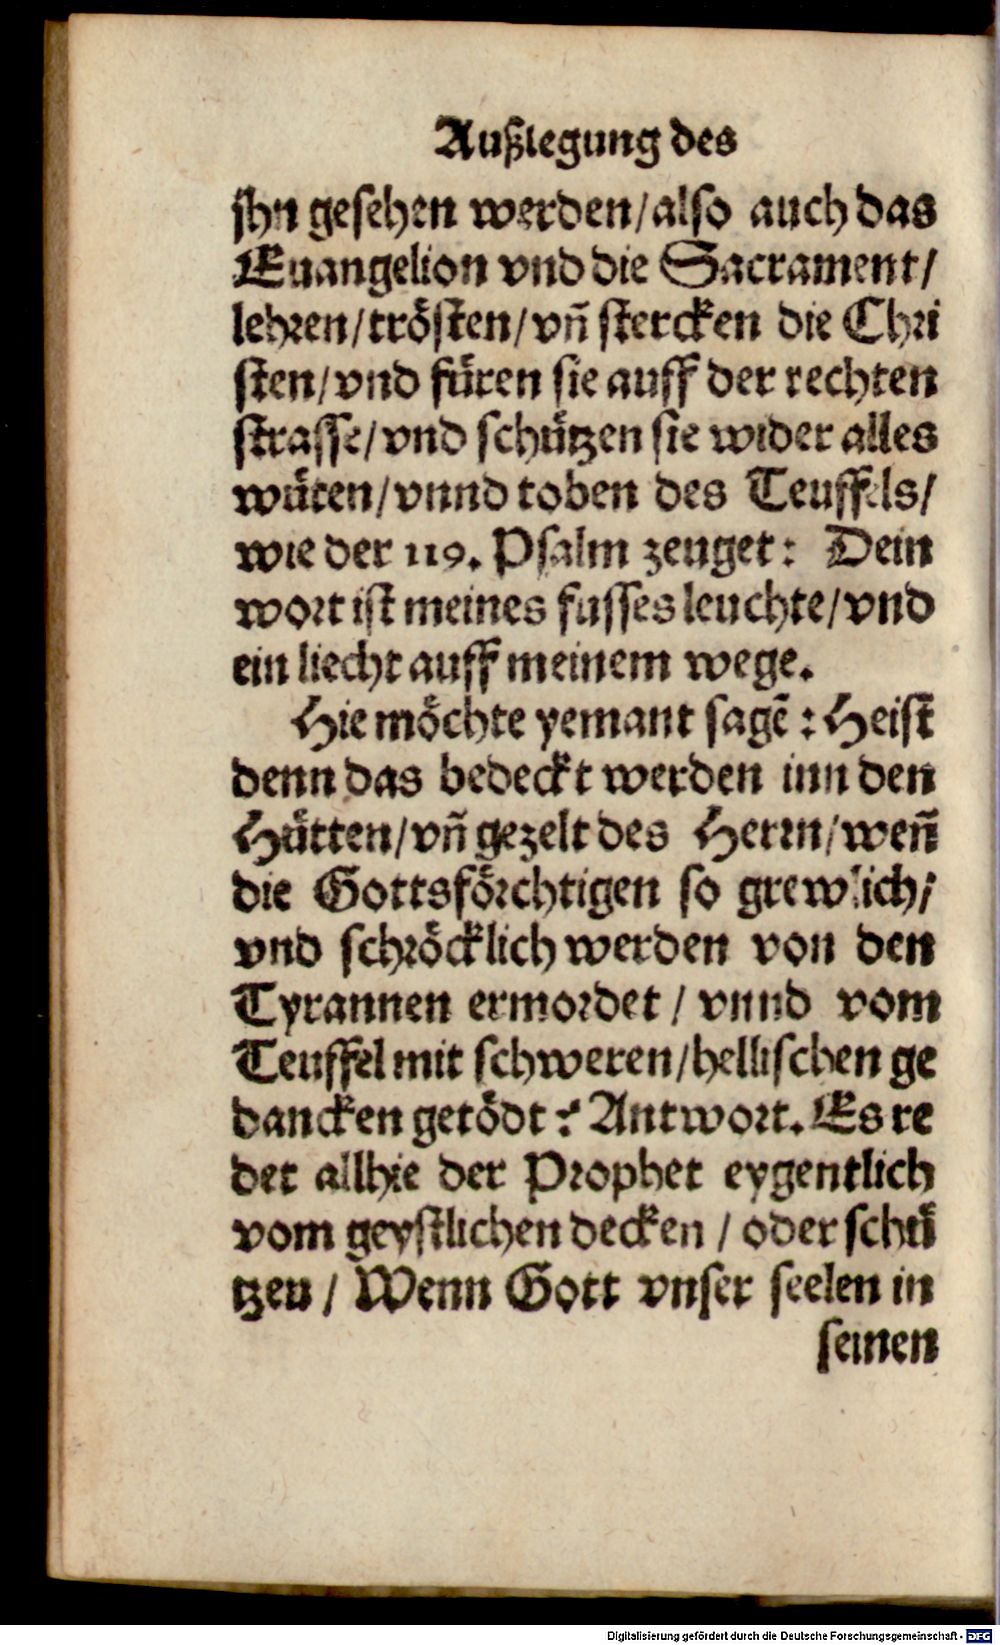 Außlegung des
jhn gesehen werden/also auch das
Euangelion vnd die Sacrament/
lehren/trösten/vñ stercken die Chri
sten/vnd füren sie auff der rechten
strasse/vnd schützen sie wider alles
wüten/vnnd toben des Teuffels/
wie der 119. Psalm zeuget: Dein
wort ist meines fusses leuchte/vnd
ein liecht auff meinem wege.
Hie möchte yemant sagẽ: Heist
denn das bedeckt werden inn den
Hütten/vñ gezelt des Herrn/weñ
die Gottsförchtigen so grewlich/
vnd schröcklich werden von den
Tyrannen ermordet/ vnnd vom
Teuffel mit schweren/hellischen ge
dancken getödt? Antwort. Es re
det allhie der Prophet eygentlich
vom geystlichen decken/ oder schü
tzen/ Wenn Gott vnser seelen in
seinen
Digitalisierung gefördert durch die Deutsche Forschungsgemeinschaft - DFG